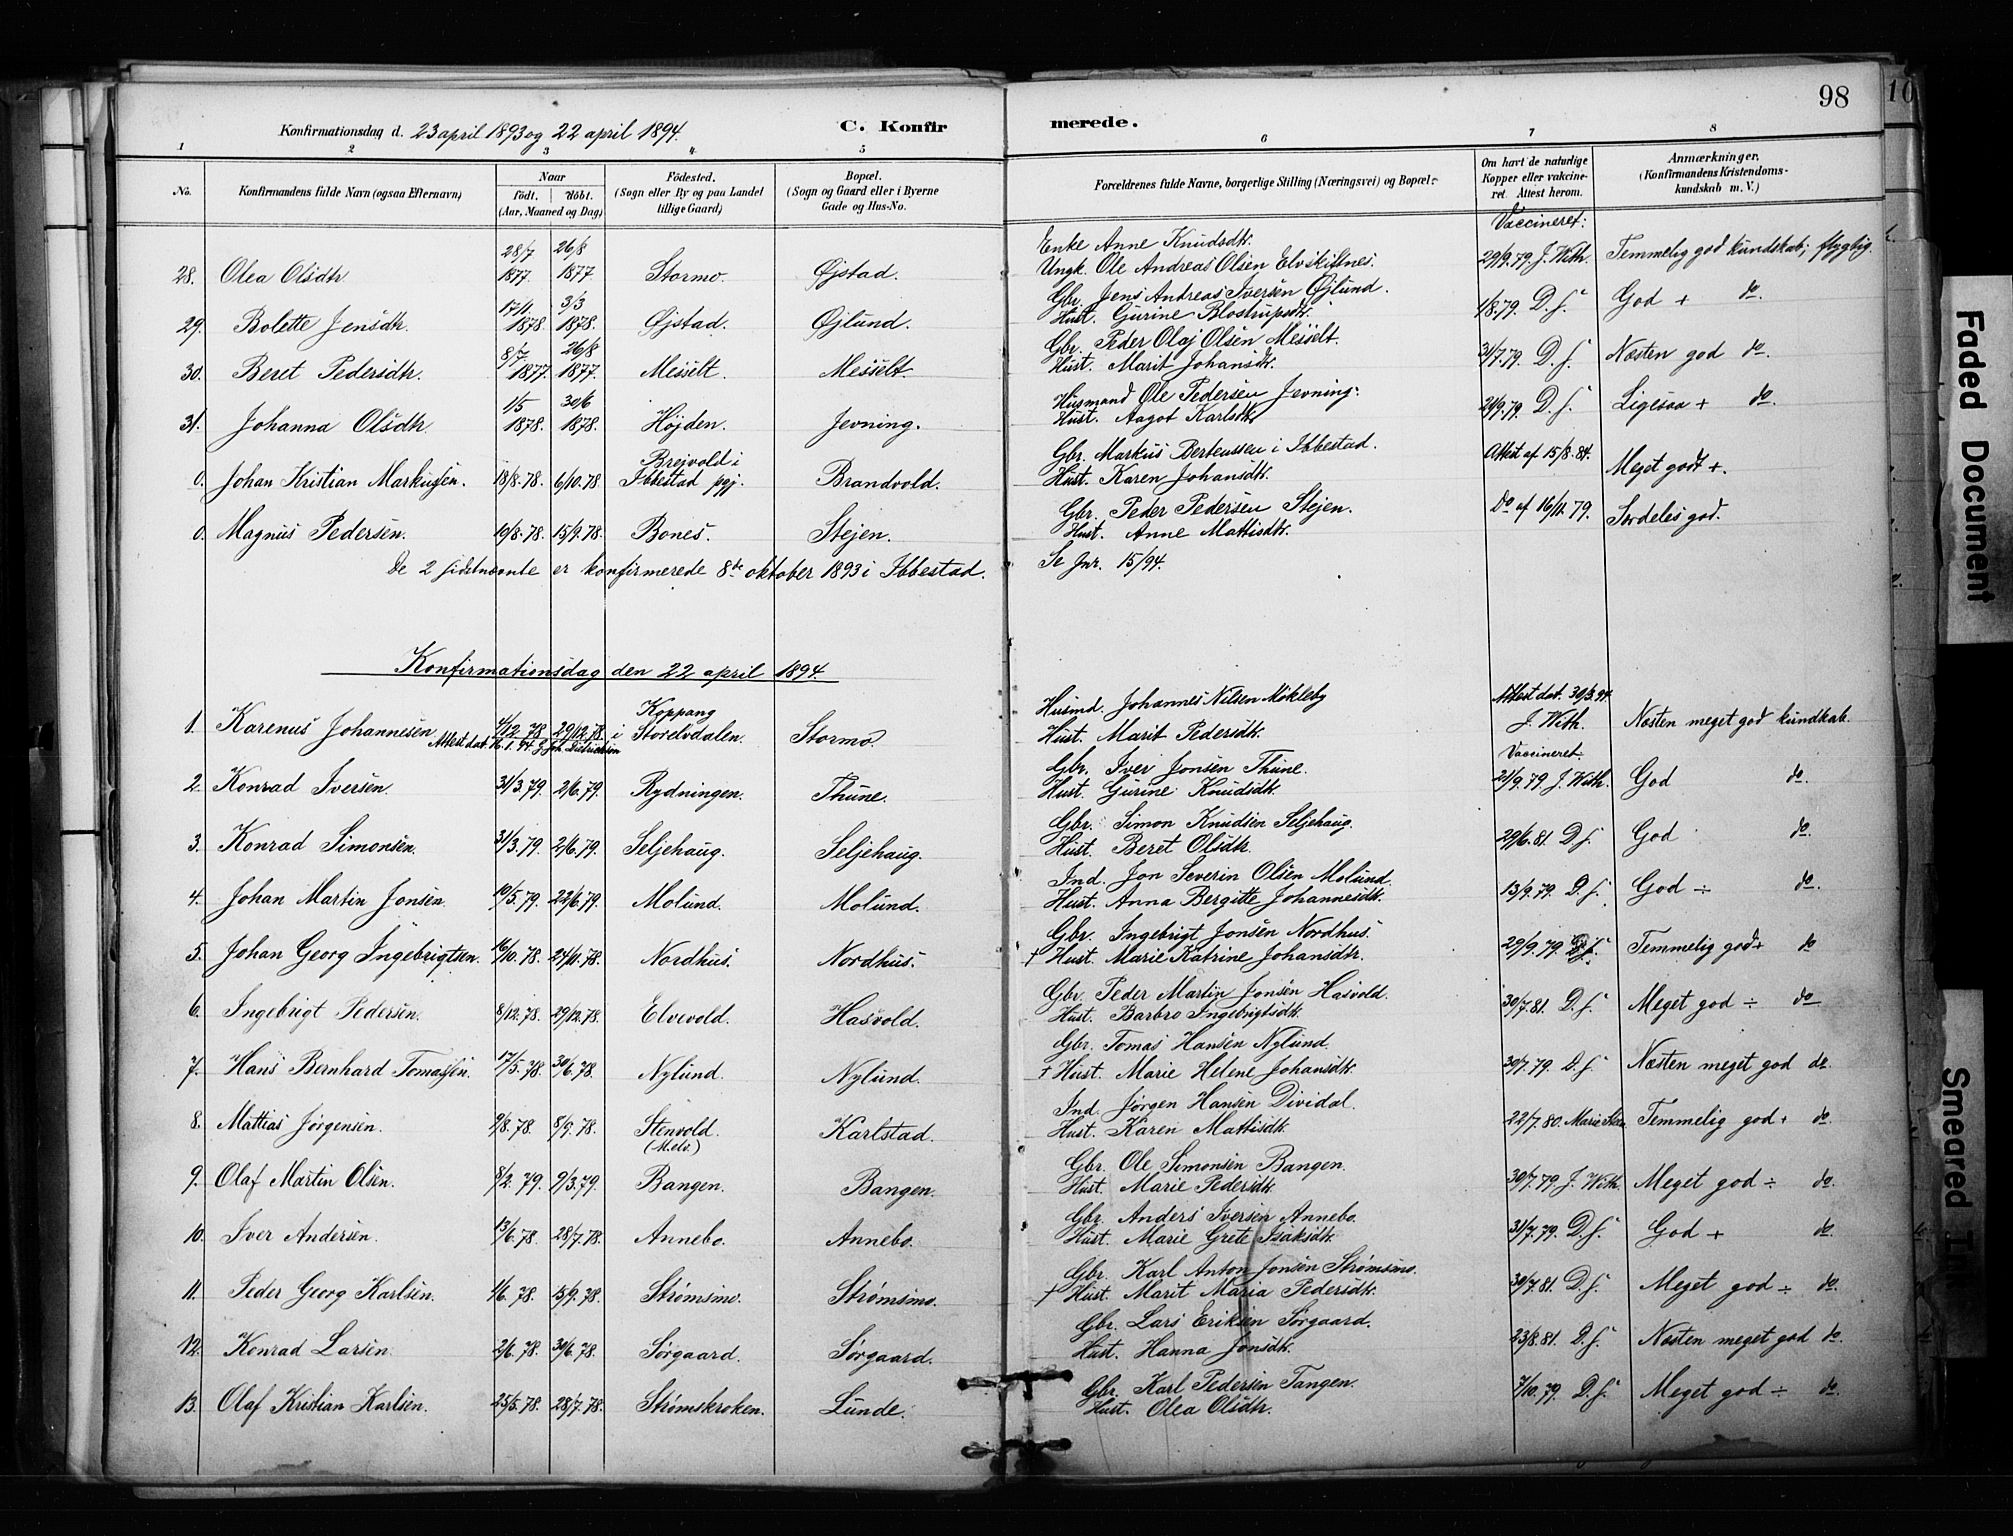 98
10
Konfirmationsdag d. 23 april 1893 og 22 april 1894. C. Konfirmerede.
1 2 3 4 5 6 7 8
No. Konfirmandens fulde Navn (ogsaa Efternavn) Naar født. døbt. (Aar, Maaned og Dag) Fødested. (Sogn eller By og paa Landet tillige Gaard) Bopæl. (Sogn og Gaard eller i Byerne Gade og Hus-No. Forældrenes fulde Navne, borgerlige Stilling (Næringsvei) og Bopæl. Om havt de naturlige Kopper eller vakcineret. Attest herom. Anmærkninger. (Konfirmandens Kristendomskundskab m. V.)
Vaccineret:
28. Olea Olsdtr. 28/7 1877 26/8 1877 Stormo. Øjstad. Enke Anne Knudsdtr. Ungk. Ole Andreas Olsen Elvskiftnes. 29/9.79. J. With. Temmelig god kundskab; flygtig.
29. Bolette Jensdtr. 17/1 1878. 3/3 1878. Øjstad. Øjlund. Gbr. Jens Andreas Iversen Øjlund. Hust. Gurine Blostrupsdtr. 1/8.79. D. s. God + do.
30. Beret Pedersdtr. 8/7 1877. 26/8 1877. Messelt. Messelt. Gbr. Peder Olaj Olsen Messelt. Hust. Marit Johansdtr. 31/7.79. D. s. Næsten god do.
31. Johanna Olsdtr. 1/5 1878. 30/6 1878. Højden. Jevning. Husmand Ole Pedersen Jevning. Hust. Aagot Karlsdtr. 21/9.79. D. s. Ligesaa + do.
0. Johan Kristian Markussen. 18/8.78. 6/10.78 Brejvold i Ibbestad pgj. Brandvold. Gbr. Markus Berteussen i Ibbestad. Hust. Karen Johansdtr. Attest af 15/8.84. Meget godt +.
0. Magnus Pedersen. 10/8.78. 15/9.78. Bones. Stejen. Gbr. Peder Pedersen Stejen. Hust. Anne Mattisdtr. Do af 16/11.79. Særdeles god.
De 2 sidstnævnte er konfirmerede 8de oktober 1893 i Ibbestad. Se Jnr. 15/94.
Konfirmationsdag den 22 april 1894.
1. Karenus Johannesen 4/12 78 29/12.78 Koppang i Storelvdalen. Stormo. Husmd. Johannes Nilsen Møkleby Hust. Marit Pedersdtr. Attest dat. 30/3.94. J. With. Næsten meget god kundskab.
Attest dat.
Vaccineret.
2. Konrad Iversen. 31/3.79. 2/6.79. Rydningen. Thune. Gbr. Iver Jonsen Thune. Hust. Gurine Knudsdtr. 21/9.79 J. With. God do.
3. Konrad Simonsen. 31/3.79. 2/6.79. Seljehaug. Seljehaug. Gbr. Simon Knudsen Seljehaug. Hust. Beret Olsdtr. 29/6.81. D. s. God do.
4. Johan Martin Jonsen. 10/5.79. 22/6.79. Molund. Molund. Ind. Jon Severin Olsen Molund. Hust. Anna Bergitte Johannesdtr. 13/9.79. D. s. God ÷ do.
5. Johan Georg Ingebrigtsen. 16/10.78. 24/11.78. Nordhus. Nordhus. Gbr. Ingebrigt Jonsen Nordhus. + Hust. Marie Katrine Johansdtr. 29/9.79. D. s. Temmelig god + do
6. Ingebrigt Pedersen. 8/12.78. 29/12.78. Elvevold. Hasvold. Gbr. Peder Martin Jonsen Hasvold. Hust. Barbro Ingebrigtsdtr. 30/7.81. D. s. Meget god ÷ do
7. Hans Bernhard Tomassen. 17/5.78. 30/6.78. Nylund. Nylund. Gbr. Tomas Hansen Nylund. + Hust. Marie Helene Johansdtr. 30/7.79. D. s. Næsten meget god do.
8. Mattias Jørgensen. 9/8.78. 8/9.78. Stenvold. (M.elv.) Karlstad. Ind. Jørgen Hansen Dividal. Hust. Karen Mattisdtr. 22/7.80. Marie Temmelig god + do.
9. Olaf Martin Olsen. 8/2.79. 9/3.79. Bangen. Bangen. Gbr. Ole Simonsen Bangen. Hust. Marie Pedersdtr. 30/7.79 J. With. Meget god ÷ do.
10. Iver Andersen. 13/6.78. 28/7.78. Annebo. Annebo. Gbr. Anders Iversen Annebo. Hust. Marie Grete Isaksdtr. 31/7.79. D. s. God + do.
11. Peder Georg Karlsen. 1/6.78. 15/9.78. Strømsmo. Strømsmo. Gbr. Karl Anton Jonsen Strømsmo. + Hust. Marit Maria Pedersdtr. 30/7.81. D. s. Meget god ÷ do.
12. Konrad Larsen. 2/6.78. 30/6.78. Sørgaard. Sørgaard. Gbr. Lars Eriksen Sørgaard. Hust. Hanna Jonsdtr. 23/8.81. D. s. Næsten meget god do.
13. Olaf Kristian Karlsen. 25/5.78. 28/7.78. Strømskroken. Lunde. Gbr. Karl Pedersen Tangen. Hust. Olea Olsdtr. 7/10.79. D. s. Meget god ÷ do.
Faded Document
Smeared In